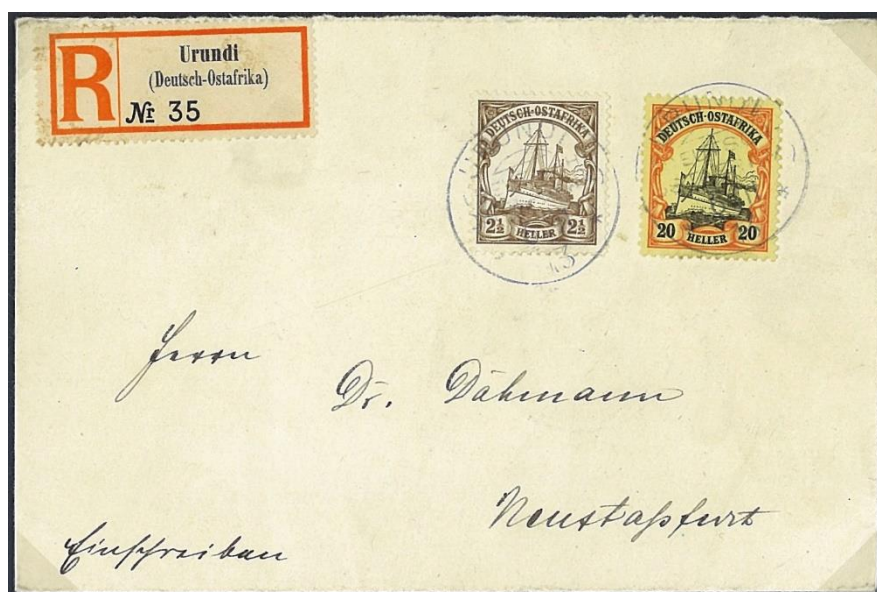 R
Urundi
(Deutsch-Ostafrika)
Nr 35
DEUTSCH-OSTAFRIKA
2½ HELLER 2½
DEUTSCH-OSTAFRIKA
20 HELLER 20
Herrn
Dr. Dähmann
Neustaßfurt
Einschreiben